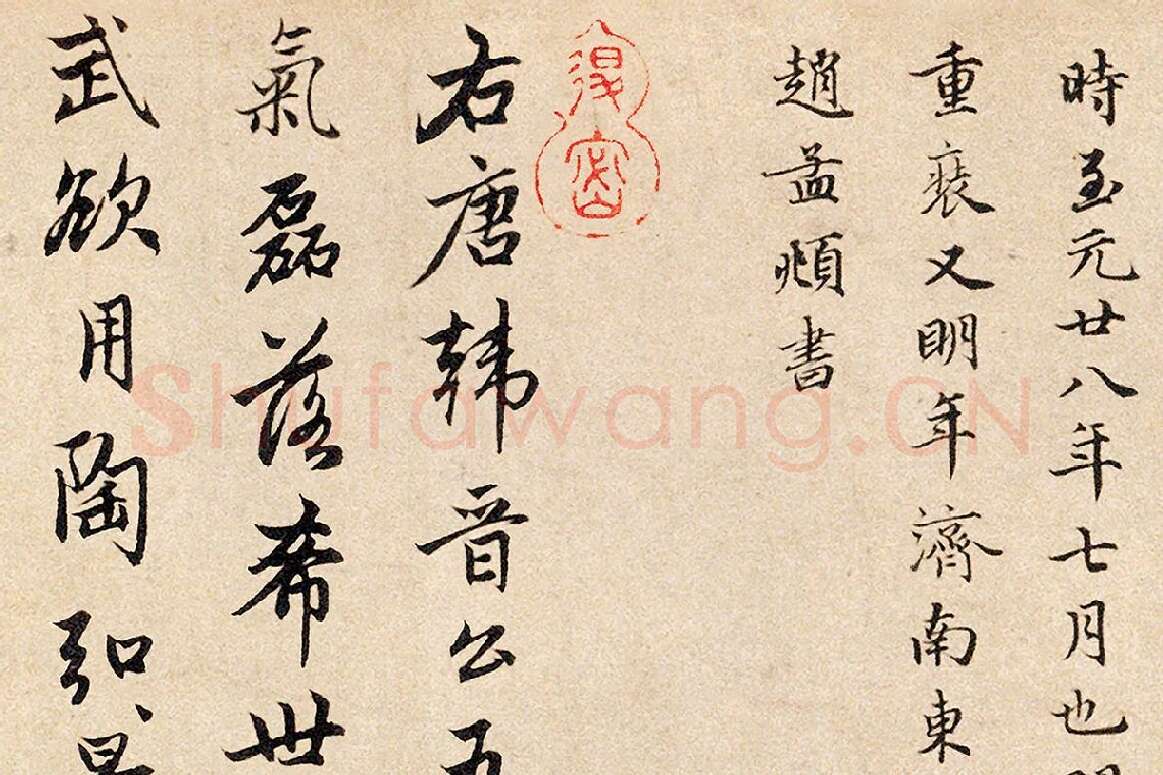 時至元廿八年七月也
重裝又明年濟南東
趙孟頫書
右唐韓晉公五
氣磊落希世
武欲用陶弘景
Shufawang.CN